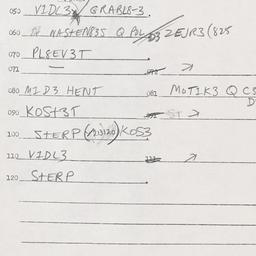 050 VIDL3 GRABLS-3
060 NASTEN835 Q POL ZEJR3(825
070 PLSEV3T
071
080 MID3 HENT 081 MOTIK3 Q CS
090 KOST3T ST
100 STERP KOS3
110 VIDL3
120 STERP